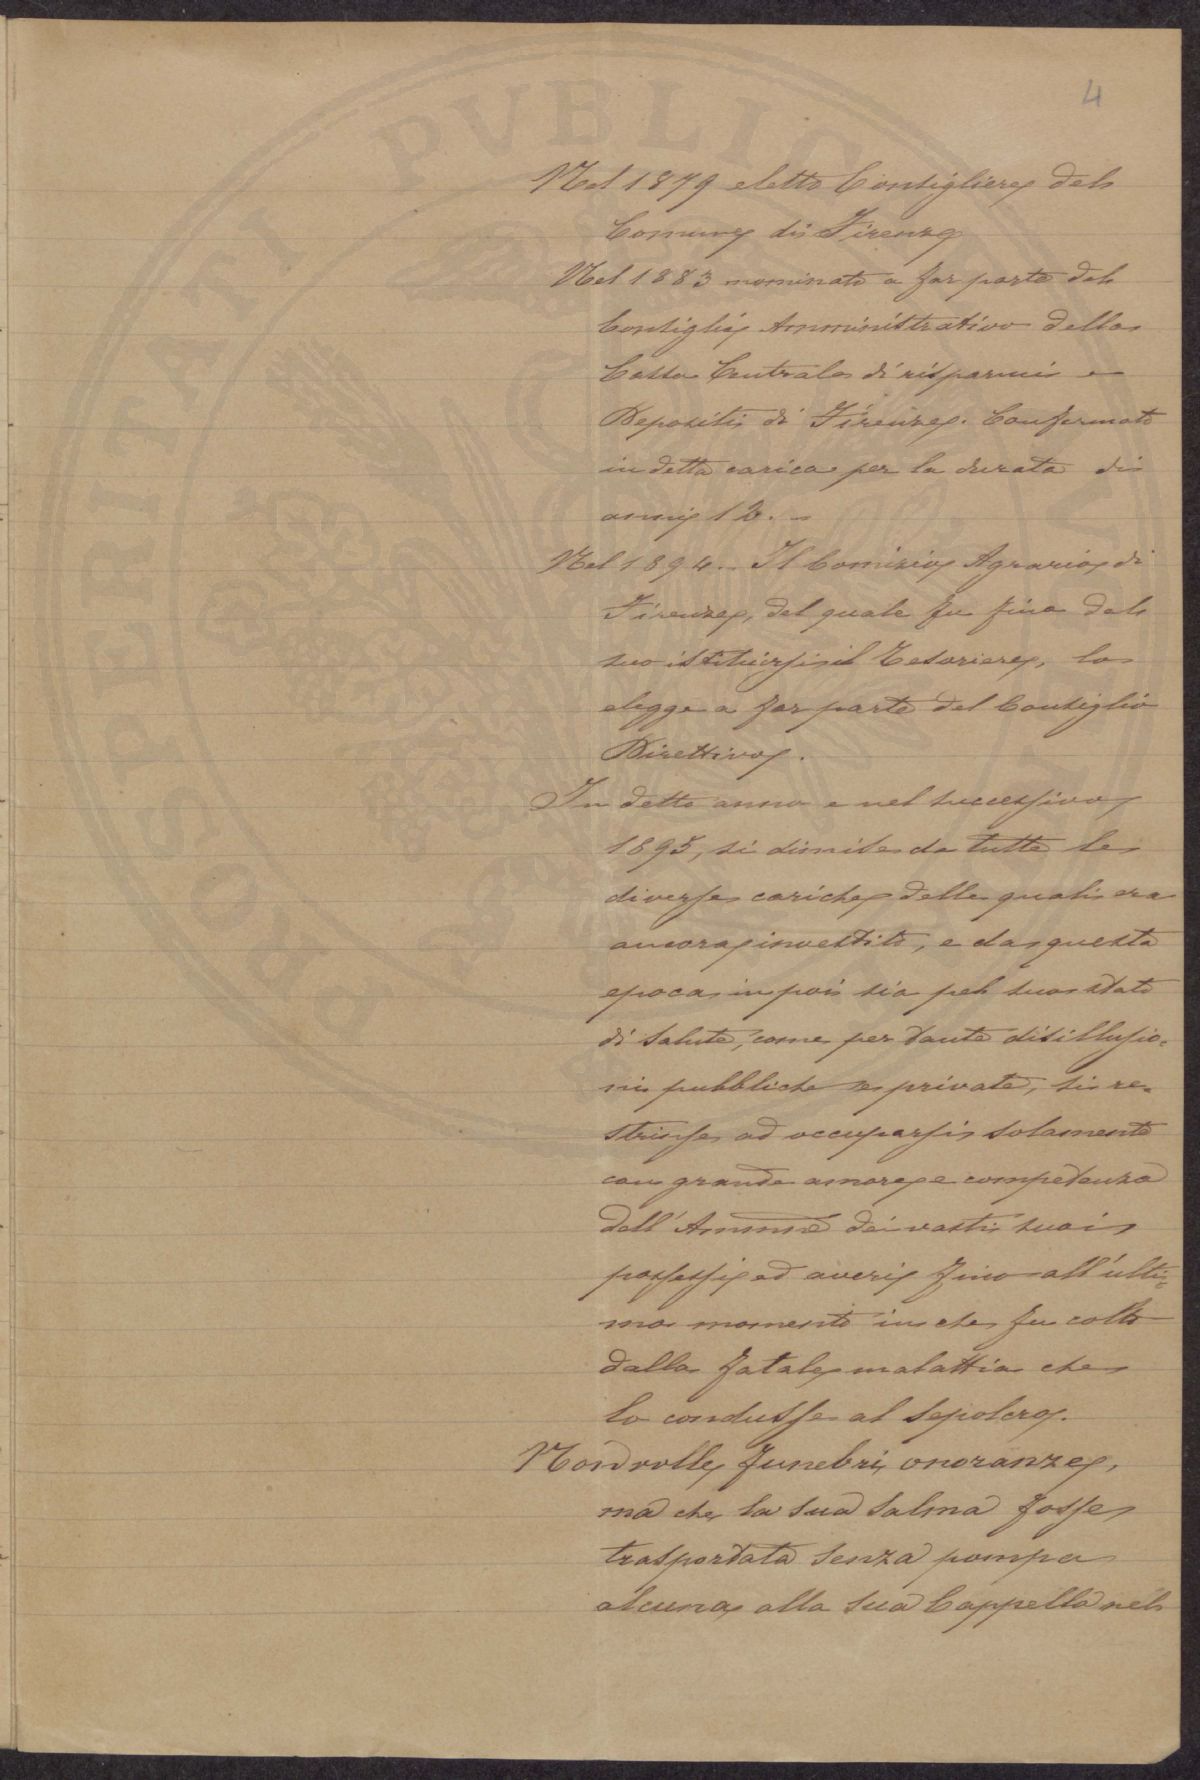 4
Nel 1879 eletto Consigliere del
Comune di Firenze
Nel 1883 nominato a far parte del
Consiglio Amministrativo della
Cassa Centrale di risparmi e
Depositi di Firenze. Confermato
in detta carica per la durata di
anni 12. –
Nel 1894. – Il Comizio Agrario di
Firenze, del quale fu fino dal
suo istituirsi il Tesoriere, lo
elegge a far parte del Consiglio
Direttivo.
In detto anno e nel successivo
1895, si dimise da tutte le
diverse cariche delle quali era
ancora investito, e da questa
epoca in poi sia pel suo stato
di salute, come per tante disillusio=
ni pubbliche e private, si re=
strinse ad occuparsi solamente
con grande amore e competenza
dell'Ammne dei vasti suoi
possessi ed averi fino all'ulti=
mo momento in che fu colto
dalla fatale malattia che
lo condusse al sepolcro.
Non volle funebri onoranze,
ma che la sua salma fosse
trasportata senza pompa
alcuna, alla sua Cappella nel